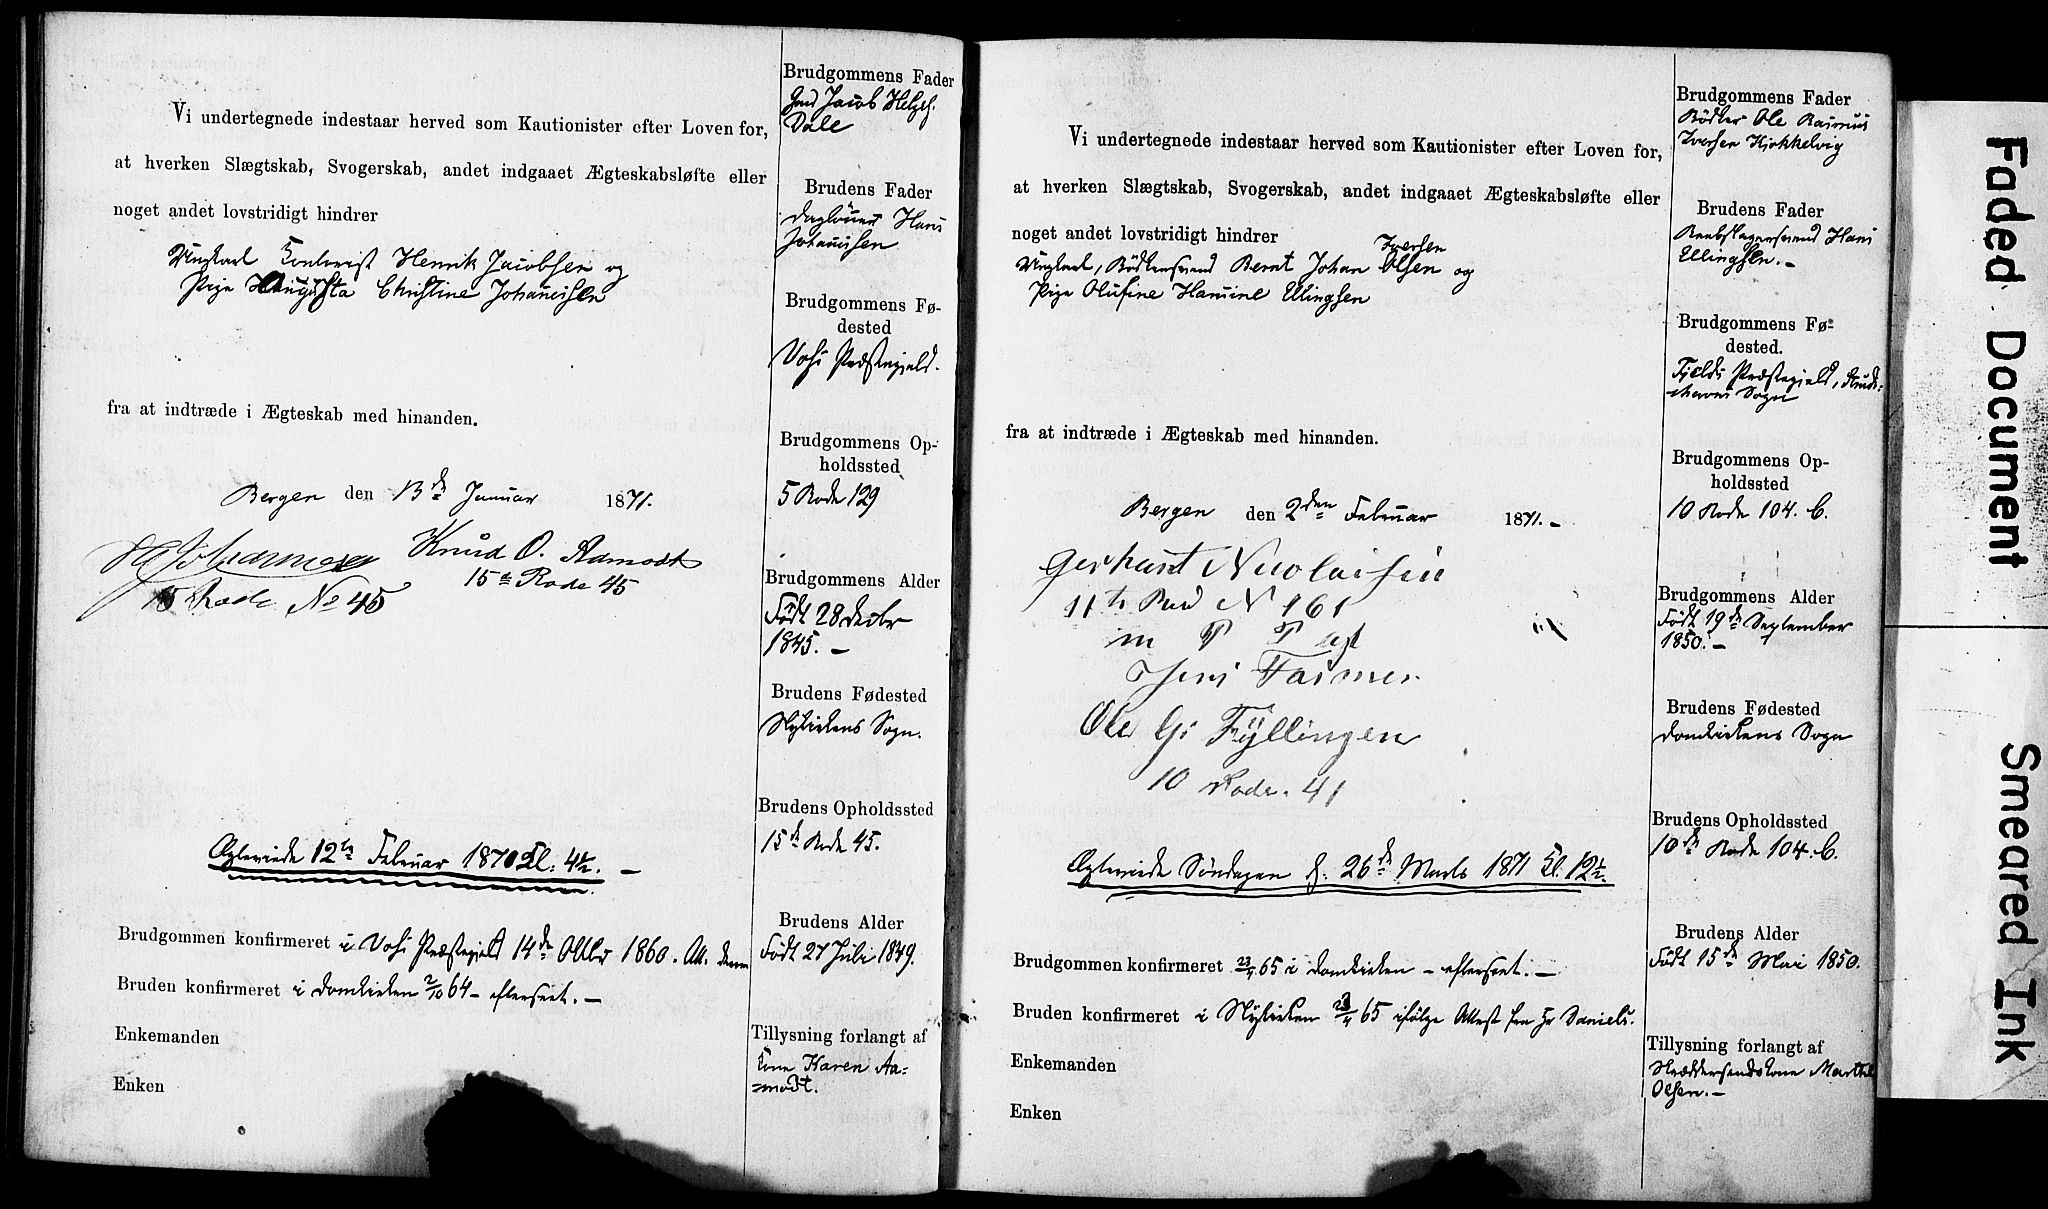 Vi undertegnede indestaar herved som Kautionister efter Loven for,
at hverken Slægtskab, Svogerskab, andet indgaaet Ægteskabsløfte eller
noget andet lovstridigt hindrer
Ungkarl Kontorist Henrik Jacobsen og
Pige Augusta Christine Johannesen
fra at indtræde i Ægteskab med hinanden.
Bergen den 13de Januar 1871.
Johannesen
15 Rode No 45
Knud O. Aamodt
15de Rode 45
Ægteviede 12te Februar 1871 Kl: 4½. –
Brudgommen konfirmeret i Voss Præstegjeld 14de Oktbr 1860. Att.
Bruden konfirmeret i Domkirken 2/10 64 – efterseet. –
Enkemanden
Enken
Brudgommens Fader
Gmd Jacob Helges.
Dale
Brudens Fader
Dagløner Hans
Johannesen
Brudgommens Fø-
dested
Voss Præstegjeld.
Brudgommens Op-
holdssted
5 Rode 129
Brudgommens Alder
Født 28 Decbr
1845. –
Brudens Fødested
Nykirkens Sogn.
Brudens Opholdssted
15de Rode 45.
Brudens Alder
Født 27 Juli 1849.
Tillysning forlangt af
Kone Karen Aa=
=modt.
Vi undertegnede indestaar herved som Kautionister efter Loven for,
at hverken Slægtskab, Svogerskab, andet indgaaet Ægteskabsløfte eller
noget andet lovstridigt hindrer
Iversen
Ungkarl, Bødkersvend Bernt Johan Olsen og
Pige Olufine Hansine Ellingsen
fra at indtræde i Ægteskab med hinanden.
Bergen den 2den Februar 1871. –
Gerhard Nicolaisen
11te Rod N 161
m P P af
Jens
Ole G: Fyllingen
10 Rode. 41
Ægteviede Søndagen d. 26de Marts 1871 Kl. 12½.
Brudgommen konfirmeret 23/4 65 i Domkirken – efterseet. –
Bruden konfirmeret i Nykirken 23/4 65 ifølge Attest fra Hr Daniels.
Enkemanden
Enken
Brudgommens Fader
Bødker Ole Rasmus
Iversen Kjøkkelvig
Brudens Fader
Reebslagersvend Hans
Ellingsen. –
Brudgommens Fø-
dested.
Fjelds Præstegjeld, Sunds=
Sogn
Brudgommens Op-
holdssted
10 Rode 104. C.
Brudgommens Alder
Født 19de September
1850. –
Brudens Fødested
Domkirkens Sogn
Brudens Opholdssted
10de Rode 104. C.
Brudens Alder
Født 15de Mai 1850.
Tillysning forlangt af
Skræddersvendskone Marthe
Olsen. –
Faded Document
Smeared Ink